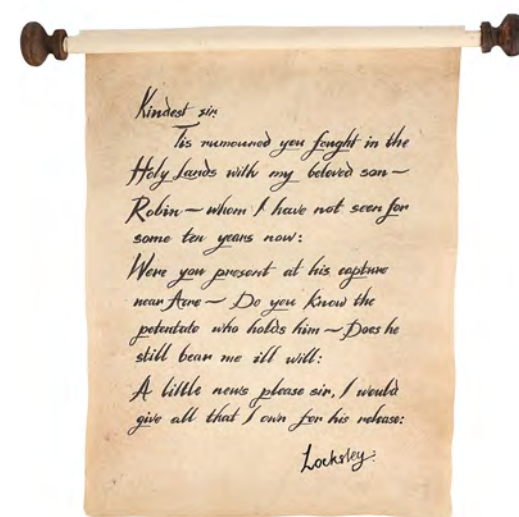 Kindest sir:
Tis rumoured you fought in the
Holy Lands with my beloved son ~
Robin ~ whom I have not seen for
some ten years now:
Were you present at his capture
near Acre ~ Do you know the
potentate who holds him ~ Does he
still bear me ill will:
A little news please sir, I would
give all that I own for his release:
Locksley: